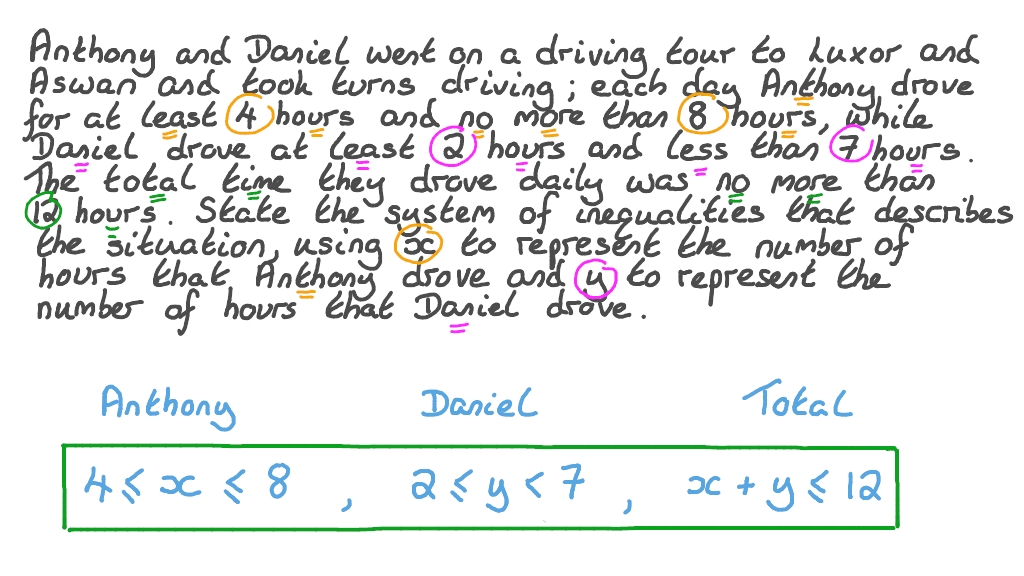 Anthony and Daniel went on a driving tour to Luxor and
Aswan and took turns driving; each day Anthony drove
for at least 4 hours and no more than 8 hours, while
Daniel drove at least 2 hours and less than 7 hours.
The total time they drove daily was no more than
12 hours. State the system of inequalities that describes
the situation, using x to represent the number of
hours that Anthony drove and y to represent the
number of hours that Daniel drove.
Anthony Daniel Total
4 ⩽ x ⩽ 8 , 2 ⩽ y < 7 , x + y ⩽ 12